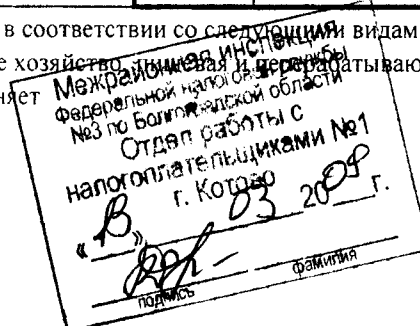 в соответствии со следующими видам
е хозяйство, пищевая и перерабатываю
няет
Межрайонная инспекция
Федеральной налоговой службы
№3 по Волгоградской области
Отдел работы с
налогоплательщиками №1
г. Котово
«13» 03 2009 г.
подпись фамилия